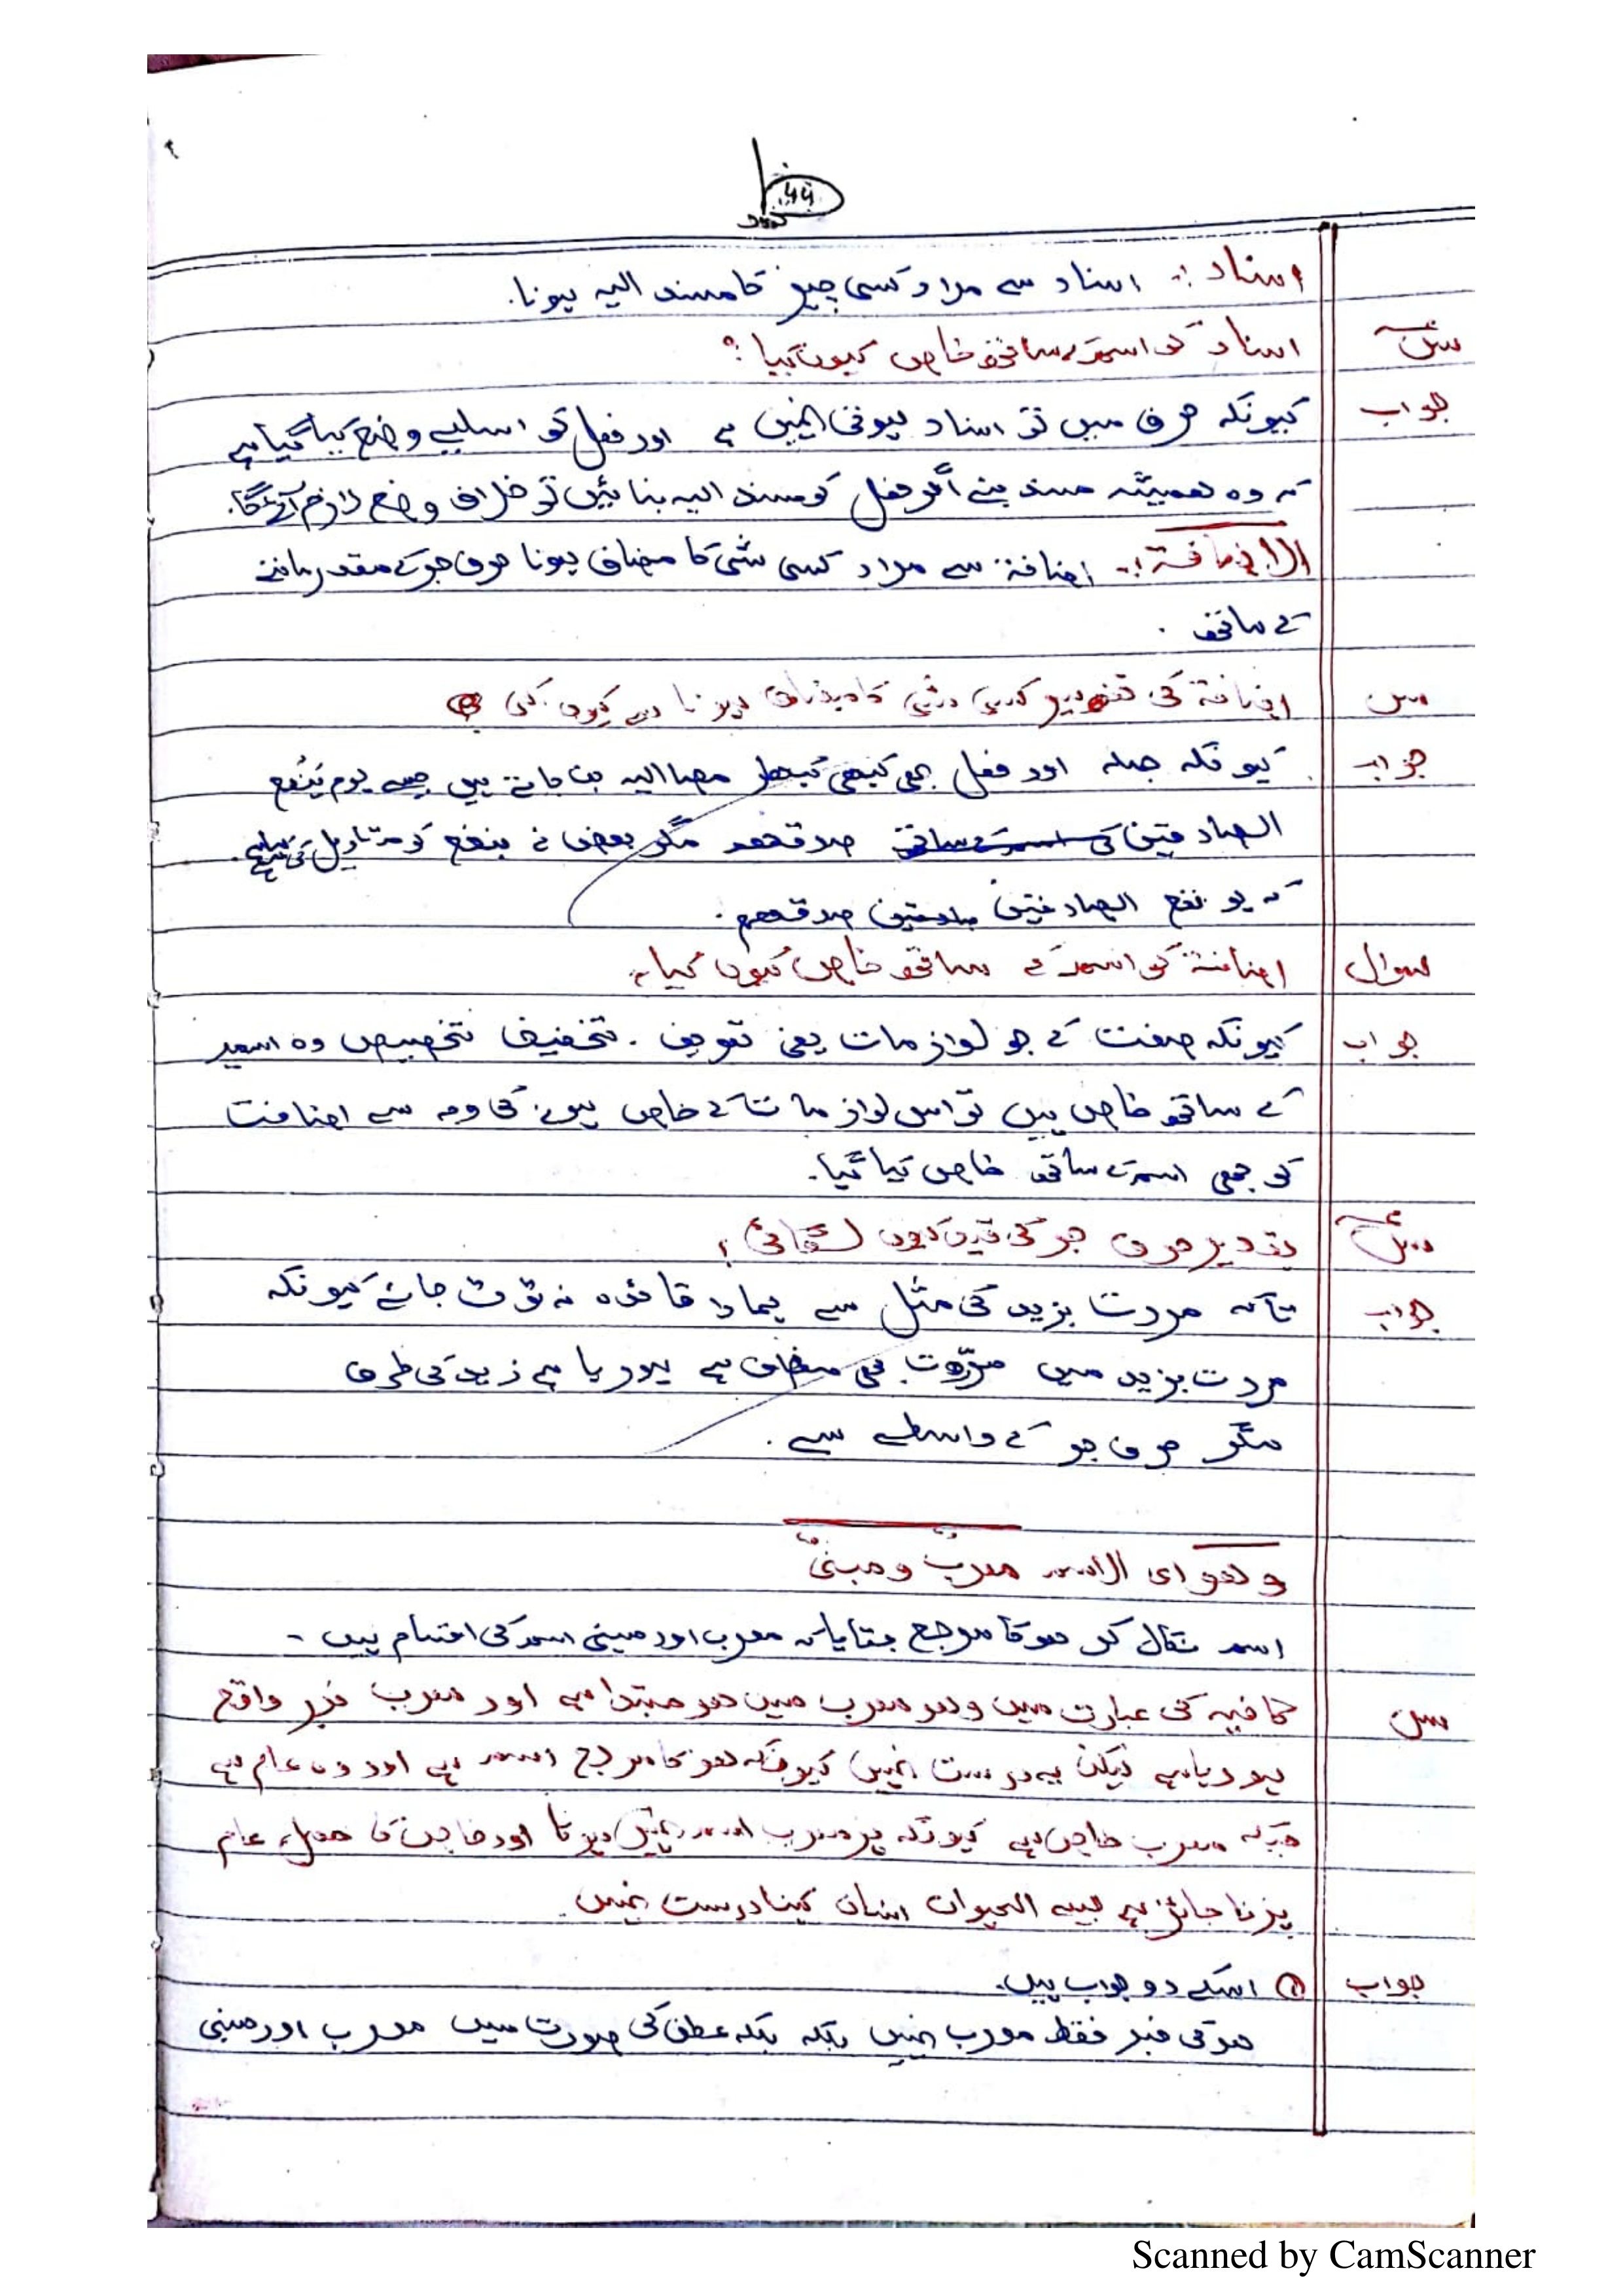 اسناد :۔ اسناد سے مراد کسی چیز کا مسند الیہ ہونا۔
س اسناد کو اسم کے ساتھ خاص کیوں کیا ؟
جواب کیونکہ حرف میں تو اسناد ہوتی نہیں ہے اور فعل کو اسلیے وضع کیا گیا ہے
کہ وہ ہمیشہ مسند بنے اگر فعل کو مسند الیہ بنائیں تو خلاف وضع لازم آئے گا۔
الاضافۃ :۔ اضافۃ سے مراد کسی شئ کا مضاف ہونا حرف جر کے مقدر ماننے
کے ساتھ ۔
س اضافۃ کی تفسیر کسی شئی کا مضاف ہونا سے کیوں کی ؟
جواب کیونکہ جملہ اور فعل بھی کبھی مضا الیہ بن جاتے ہیں جیسے یوم یَنْفَع
الصادقین صدقھم مگر بعض نے ینفع کو تاویل
کہ یو نفع الصادقین صدقھم ۔
سوال اضافۃ کو اسم کے ساتھ خاص کیوں کیا ؟
جواب کیونکہ صفت کے جو لوازمات یعنی تعریف ۔ تخفیف تخصیص وہ اسم
کے ساتھ خاص ہیں تو اس لوازمات کے خاص ہونے کی وجہ سے اضافت
کو بھی اسم کے ساتھ خاص کیا گیا۔
س بتقدیر حرف جر کی قید کیوں لگائی ؟
جواب تاکہ مررت بزید کی مثل سے ہمارا قائدہ نہ ٹوٹ جائے کیونکہ
مررت بزید میں مررت بھی مضاف ہے ہو رہا ہے زید کی طرف
مگر حرف جر کے واسطے سے ۔
وھو ای الاسم معربٌ و مبنیٌ
اسم نکال کر ھو کا مرجع بتایا کہ معرب اور مبنی اسم کی اقسام ہیں ۔
س کافیہ کی عبارت میں وھو معرب میں ھو مبتدا ہے اور معرب خبر واقع
ہو رہا ہے لیکن یہ درست نہیں کیونکہ ھو کا مرجع اسم ہے اور وہ عام ہے
جبکہ معرب خاص ہے کیونکہ ہر معرب اسم نہیں ہوتا اور خاص کا حمل عام
پر نا جائز ہے جیسے الحیوان انسان کہنا درست نہیں۔
جواب ① اسکے دو جواب ہیں۔
ھو کی خبر فقط معرب نہیں بلکہ بلکہ عطف کی صورت میں معرب اور مبنی
Scanned by CamScanner